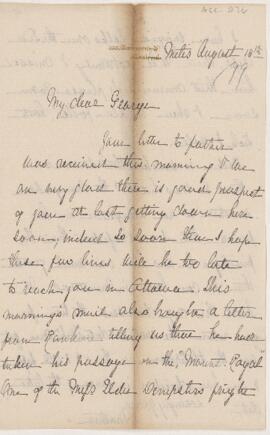 ACC 276
Metis August 18th
/99
My dear George
Your letter to father
was received this morning & we
are very glad there is good prospect
of your at last getting down here
soon, indeed so soon that I hope
these few lines will be too late
to reach you in Ottawa. This
mornings mail also brought a letter
from Frank telling us that he has
taken his passage on the "Mount Royal"
one of the Elder Dempsters